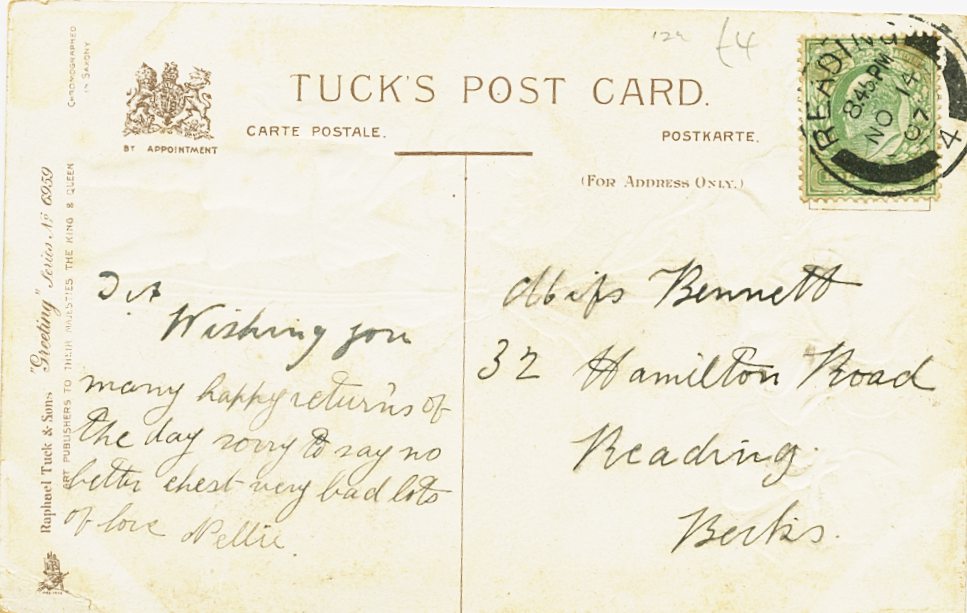 CHROMOGRAPHED
IN SAXONY
TUCK'S POST CARD.
CARTE POSTALE.
POSTKARTE.
BY APPOINTMENT
(FOR ADDRESS ONLY.)
£4
READING
845PM
NO 14
07
4
Raphael Tuck & Sons "Greeting" Series No 6959
ART PUBLISHERS TO THEIR MAJESTIES THE KING & QUEEN
Wishing you
many happy return's of
the day sorry to say no
better chest very bad lots
of love Nellie.
Miss Bennett
32 Hamilton Road
Reading.
Berks.